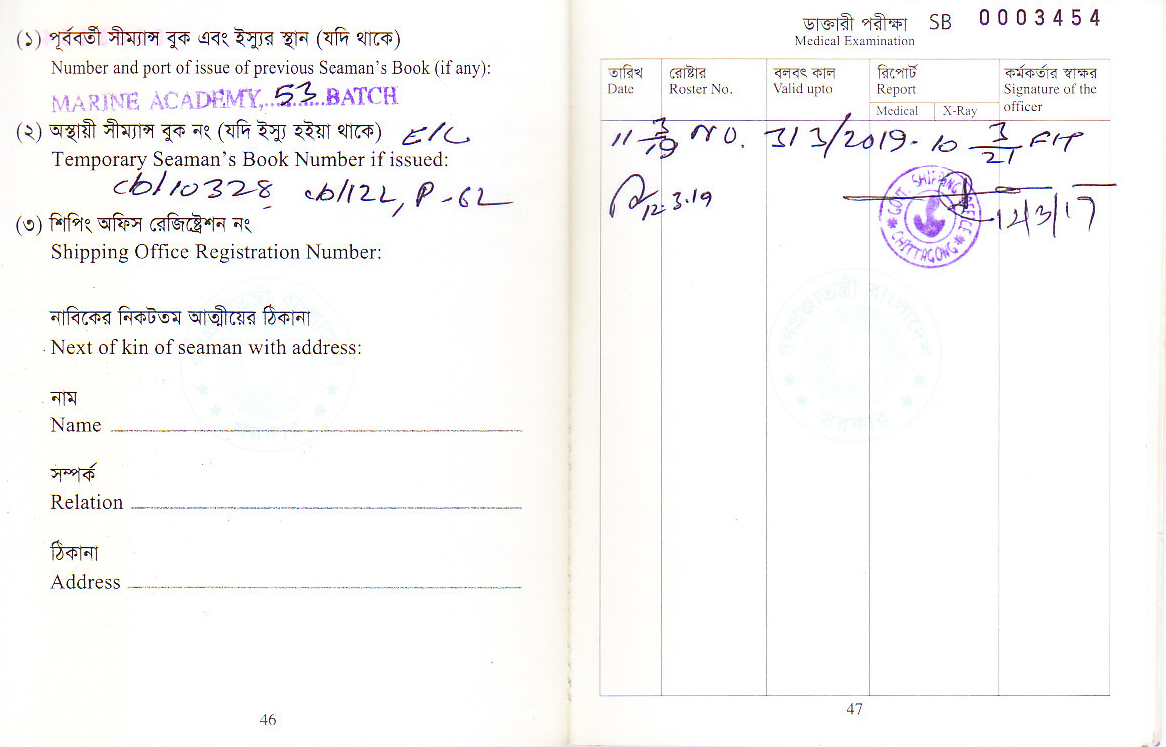 (১) পূর্ববর্তী সীম্যান্স বুক এবং ইস্যুর স্থান (যদি থাকে)
Number and port of issue of previous Seaman's Book (if any):
MARINE ACADEMY,...53...BATCH
(২) অস্থায়ী সীম্যান্স বুক নং (যদি ইস্যু হইয়া থাকে) E/L
Temporary Seaman's Book Number if issued:
cb/10328 cb/122, P-62
(৩) শিপিং অফিস রেজিষ্ট্রেশন নং
Shipping Office Registration Number:
নাবিকের নিকটতম আত্মীয়ের ঠিকানা
Next of kin of seaman with address:
নাম
Name
সম্পর্ক
Relation
ঠিকানা
Address
46
ডাক্তারী পরীক্ষা SB 0003454
Medical Examination
তারিখ রোষ্টার বলবৎ কাল রিপোর্ট কর্মকর্তার স্বাক্ষর
Date Roster No. Valid upto Report Signature of the officer
Medical X-Ray
11 3/19 NO. 3/3/2019-10 3/21 FIT
12.3.19 12/3/17
GOVT. SHIPPING OFFICE
CHATTAGONG
গণপ্রজাতন্ত্রী বাংলাদেশ
সরকার
47